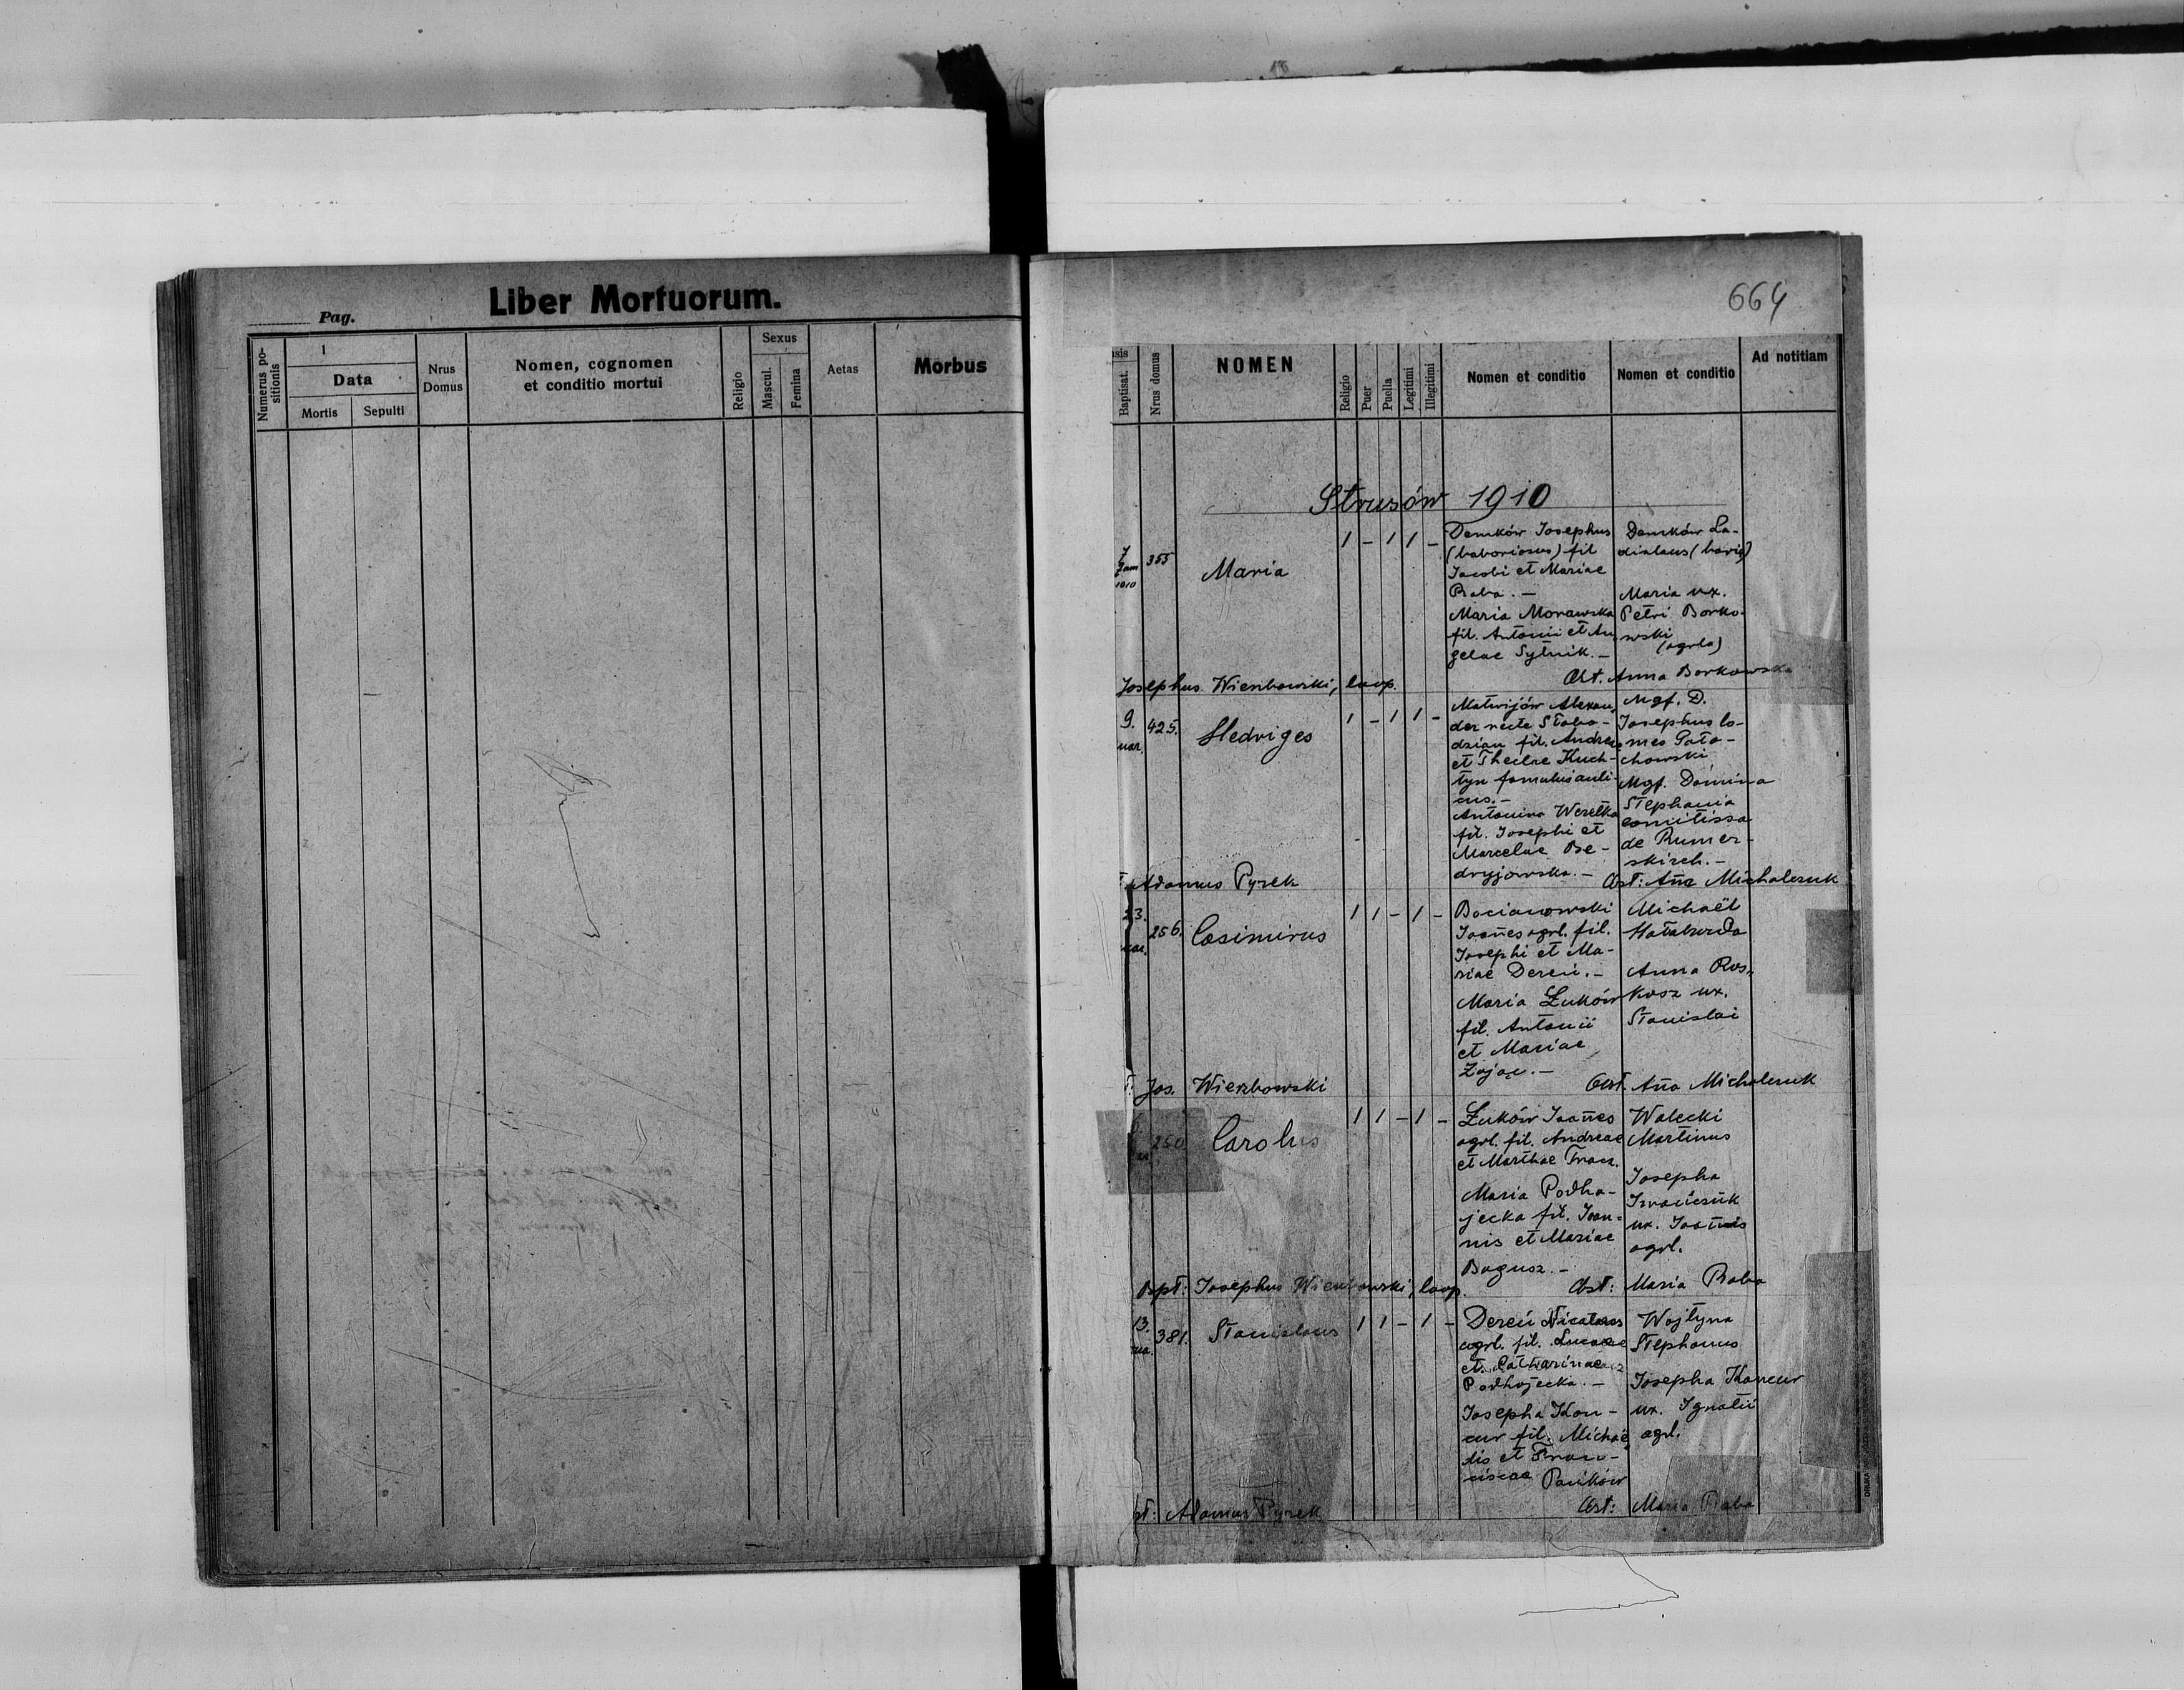 Pag.
Liber Mortuorum.
Numerus po-
sitionis
1
Data
Mortis
Sepulti
Nrus
Domus
Nomen, cognomen
et conditio mortui
Religio
Sexus
Mascul.
Femina
Aetas
Morbus
664
nsis
Baptisat.
Nrus domus
NOMEN
Religio
Puer
Puella
Legitimi
Illegitimi
Nomen et conditio
Nomen et conditio
Ad notitiam
Strusów 1910
7
Jan
1910
355
Maria
1 - 1 1 -
Demków Josephus
(laboriosus) fil
Jacobi et Mariae
Baba. -
Maria Morawska
fil. Antonii et An
gelae Sytnik. -
Demków La-
dislaus
Maria ux.
Petri Borko-
wski
(agrla)
Josephus Wierzbowski, coop.
Ost. Anna Borkowska
9.
uar.
425.
Hedviges
1 - 1 1 -
Matwijów Alexan
der recte Słobo-
dzian fil. Andreae
et Theclae Kuch-
tyn famulus auli-
cus. -
Antonina Weretka
fil. Josephi et
Marcelae Be-
dryjowska. -
Mgf. D.
Josephus Co-
mes Goło-
chowski
Mgf. Domina
Stephania
comitissa
de Rumer-
skirch. -
Adamus Pyrek
Ost: Ana Michalczuk
23.
uar.
256.
Casimirus
1 1 - 1 -
Bocianowski
Joañes agrl. fil.
Josephi et Ma-
riae Dereń. -
Maria Łuków
fil. Antonii
et Mariae
Zając. -
Michaël
Hałaburda
Anna Ros-
kosz ux.
Stanislai
Jos. Wierzbowski
Ost. Aña Michalczuk
250
Carolus
1 1 - 1 -
Łuków Joañes
agrl. fil. Andreae
et Marthae Tracz.
Maria Podha-
jecka fil. Joan-
nis et Mariae
Bogusz. -
Walecki
Martinus
Josepha
Iwańczuk
ux. Joañis
agrl.
Bapt: Josephus Wierzbowski, coop.
Ost: Maria Baba
13.
381.
Stanislaus
1 1 - 1 -
Dereń Nicolaus
agrl. fil. Lucae
et Catharinae
Podhajecka. -
Josepha Kon-
cur fil. Michaë
lis et Fran-
ciscae Pańków
Wojtyna
Stephanus
Josepha Koncur
ux. Ignatii
agrl.
pt: Adamus Pyrek
Ost: Maria Baba